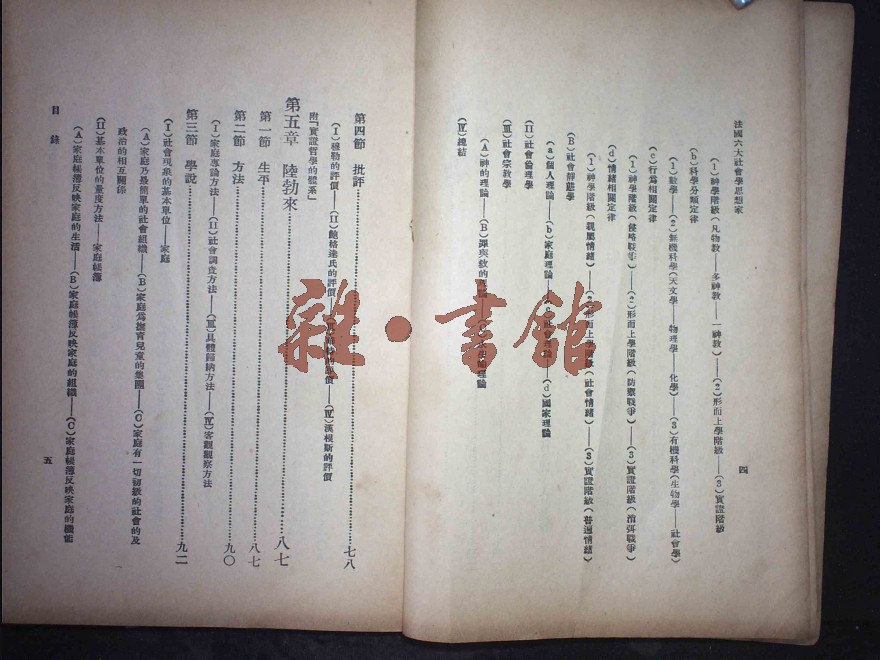 法國六大社會學思想家
四
(1)神學階級(凡物教——多神教——一神教)——(2)形而上學階級——(3)實證階級
(b)科學分類定律
(1)數學——(2)無機科學(天文學——物理學——化學)——(3)有機科學(生物學——社會學)
(c)行爲相關定律
(1)神學階級(侵略戰爭)——(2)形而上學階級(防禦戰爭)——(3)實證階級(消弭戰爭)
(d)情緒相關定律
(1)神學階級(親屬情緒)——(2)形而上學階級(社會情緒)——(3)實證階級(普遍情緒)
(B)社會靜態學
(a)個人理論——(b)家庭理論——(c)社會理論——(d)國家理論
(II)社會倫理學
(III)社會宗教學
(A)神的理論——(B)
(IV)總結
第四節 批評 七八
(I)穆勒的評價——(II)鮑格達氏的評價——(III)的評價——(IV)漢根斯的評價
附「實證哲學的體系」
第五章 陸勃來 八七
第一節 生平 八七
第二節 方法 九〇
(I)家庭專論方法——(II)社會調查方法——(III)具體歸納方法——(IV)客觀觀察方法
第三節 學說 九二
(I)社會現象的基本單位——家庭
(A)家庭乃最簡單的社會組織——(B)家庭爲撫育兒童的集團——(C)家庭有一切初級的社會的及
政治的相互關係
(II)基本單位的量度方法——家庭帳簿
(A)家庭帳簿反映家庭的生活——(B)家庭帳簿反映家庭的組織——(C)家庭帳簿反映家庭的機能
目錄
五
雜·書館